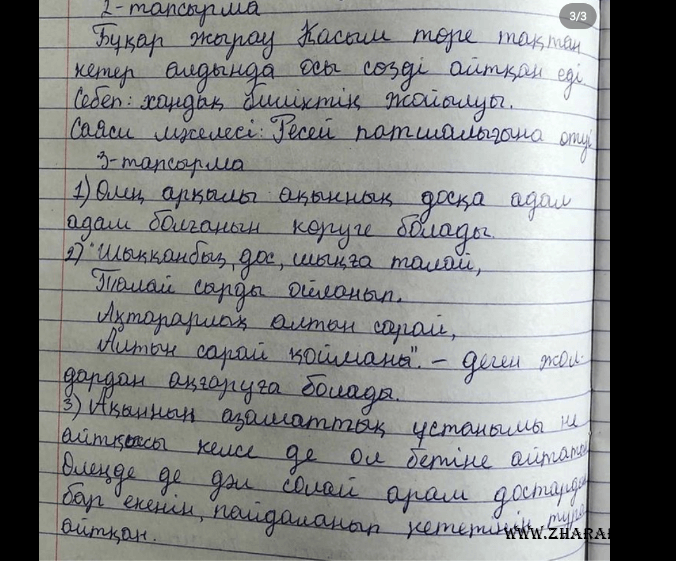 2-тапсырма
3/3
Бұқар жырау Қасым төре тақтан
кетер алдында осы сөзді айтқан еді
Себеп: хандық биліктің жойылуы.
Саяси мәселесі: Ресей патшалығына өтуі
3-тапсырма
1) Өлең арқылы ақынның досқа адал
адам болғанын көруге болады.
2) "Шыққанбыз, дос, шыңға талай,
Талай сырды ойланып.
Ақтарарлық алтын сарай,
Алтын сарай қойманы". – деген жол-
дардан аңғаруға болады.
3) Ақынның азаматтық ұстанымы не
айтқысы келсе де ол бетіне айтатын
Өлеңде де дәл солай арам достардың
бар екенін, пайдаланып кететінін тура
айтқан.
WWW.ZHARAR